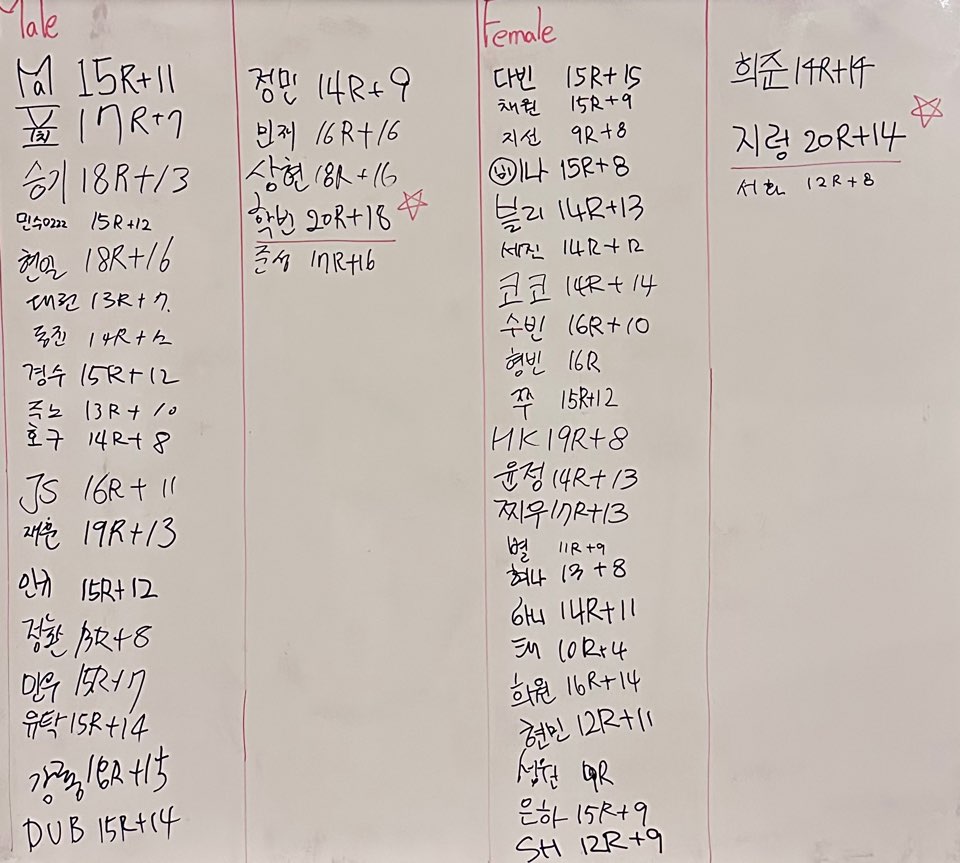 Male
15R+11
17R+7
승기 18R+13
민수0222 15R+12
현일 18R+16
태린 13R+7.
동진 14R+12
경수 15R+12
죽노 13R+10
호구 14R+8
JS 16R+11
재훈 19R+13
인귀 15R+12
정환 13R+8
민우 15R+7
유탁 15R+14
강룡 18R+15
DUB 15R+14
정민 14R+9
민제 16R+16
상현 18R+16
학빈 20R+18
준성 17R+16
Female
다빈 15R+15
채원 15R+9
지선 9R+8
비나 15R+8
블리 14R+13
세진 14R+12
코코 14R+14
수빈 16R+10
형빈 16R
쭈 15R+12
HK 19R+8
윤정 14R+13
찌우 17R+13
별 11R+9
혀나 13+8
하니 14R+11
태 10R+4
희원 16R+14
현민 12R+11
9R
은하 15R+9
SH 12R+9
희준 14R+14
지렁 20R+14
서희 12R+8